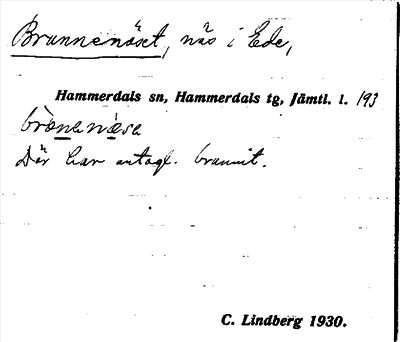 Brunnenäset, näs i Ede,
Hammerdals sn, Hammerdals tg, Jämtl. l. 193
Där har antagl. brunnit.
C. Lindberg 1930.